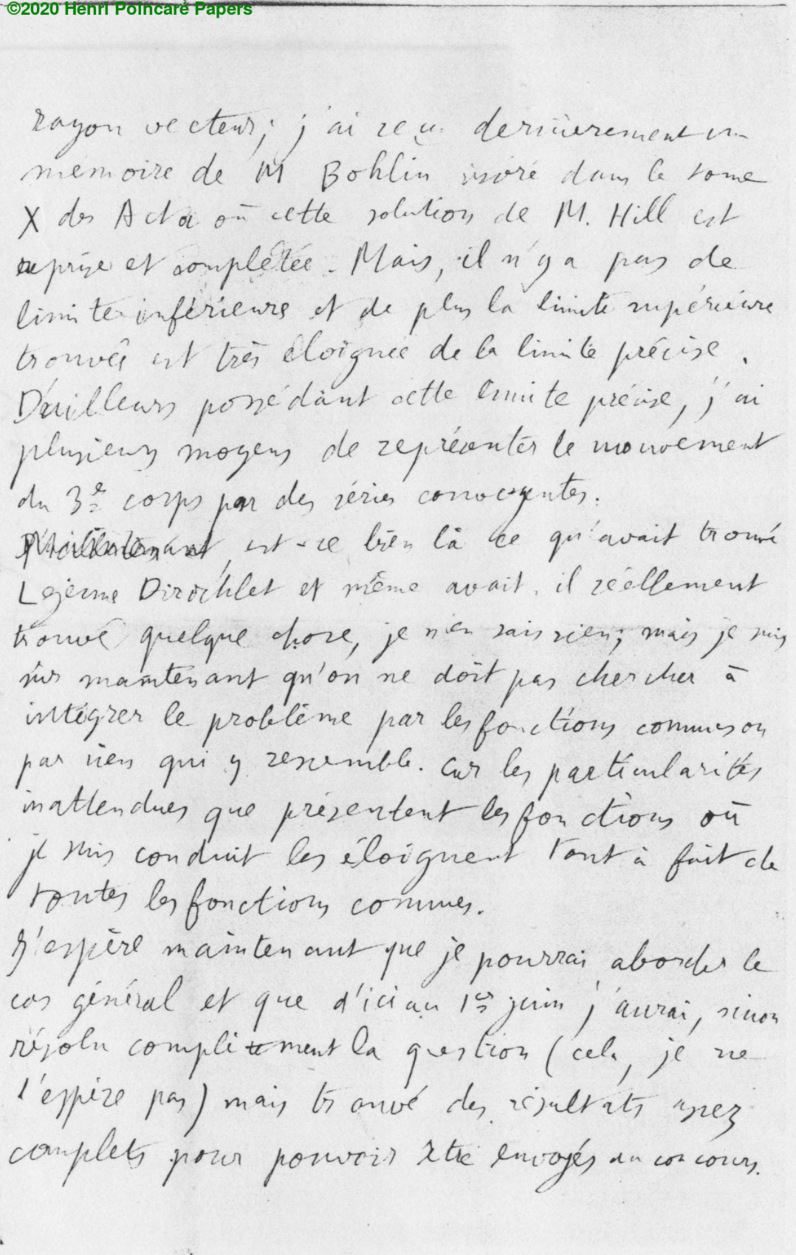 ©2020 Henri Poincaré Papers
rayon vecteur; j'ai reçu dernièrement un
mémoire de M Bohlin inséré dans le tome
X des Acta où cette solution de M. Hill est
reprise et complétée. Mais, il n'y a pas de
limite inférieure et de plus la limite supérieure
trouvée est très éloignée de la limite précise.
D'ailleurs possédant cette limite précise, j'ai
plusieurs moyens de représenter le mouvement
du 3e corps par des séries convergentes.
Maintenant, est-ce bien là ce qu'avait trouvé
Lejeune Dirichlet et même avait-il réellement
trouvé quelque chose, je n'en sais rien; mais je suis
sûr maintenant qu'on ne doit pas chercher à
intégrer le problème par les fonctions connues ou
par rien qui y ressemble. Car les particularités
inattendues que présentent les fonctions où
je suis conduit les éloignent tout à fait de
toutes les fonctions connues.
J'espère maintenant que je pourrai aborder le
cas général et que d'ici au 1er juin j'aurai, sinon
résolu complètement la question (cela, je ne
l'espère pas) mais trouvé des résultats assez
complets pour pouvoir être envoyés au concours.